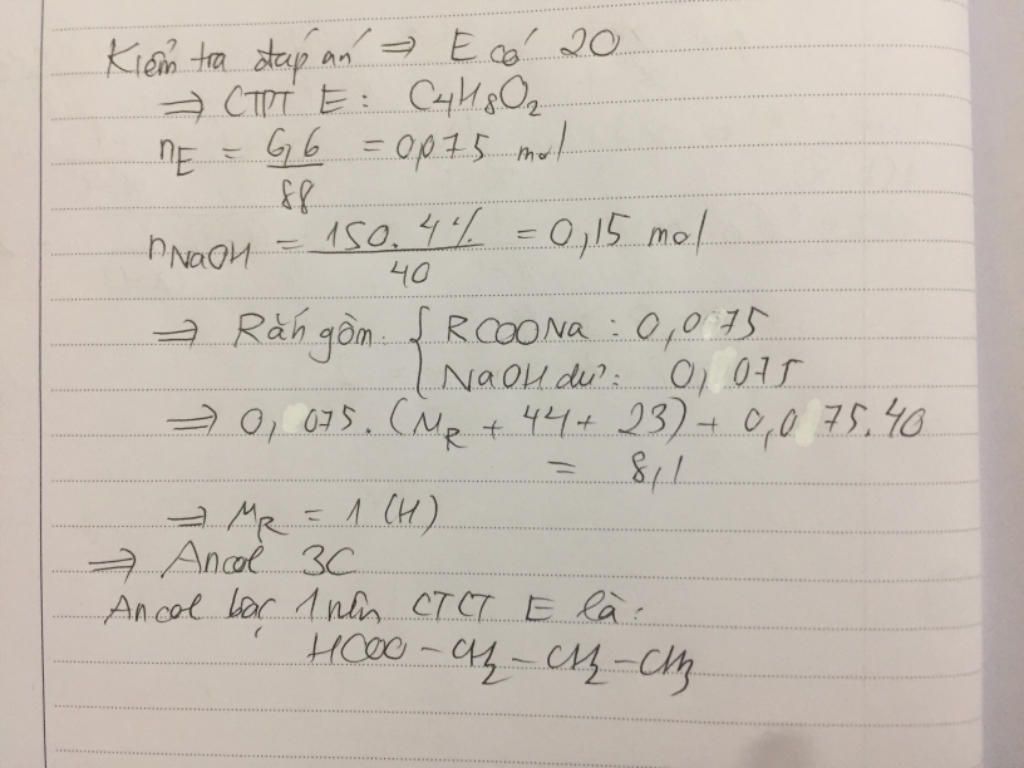 Kiểm tra đáp án ⇒ E có 2O
⇒ CTPT E: C4H8O2
nE = 6,6 / 88 = 0,075 mol
nNaOH = 150.4% / 40 = 0,15 mol
⇒ Rắn gồm: { RCOONa: 0,075
NaOH dư: 0,075
⇒ 0,075.(MR + 44 + 23) + 0,075.40
= 8,1
⇒ MR = 1 (H)
⇒ Ancol 3C
Ancol bậc 1 nên CTCT E là:
HCOO-CH2-CH2-CH3